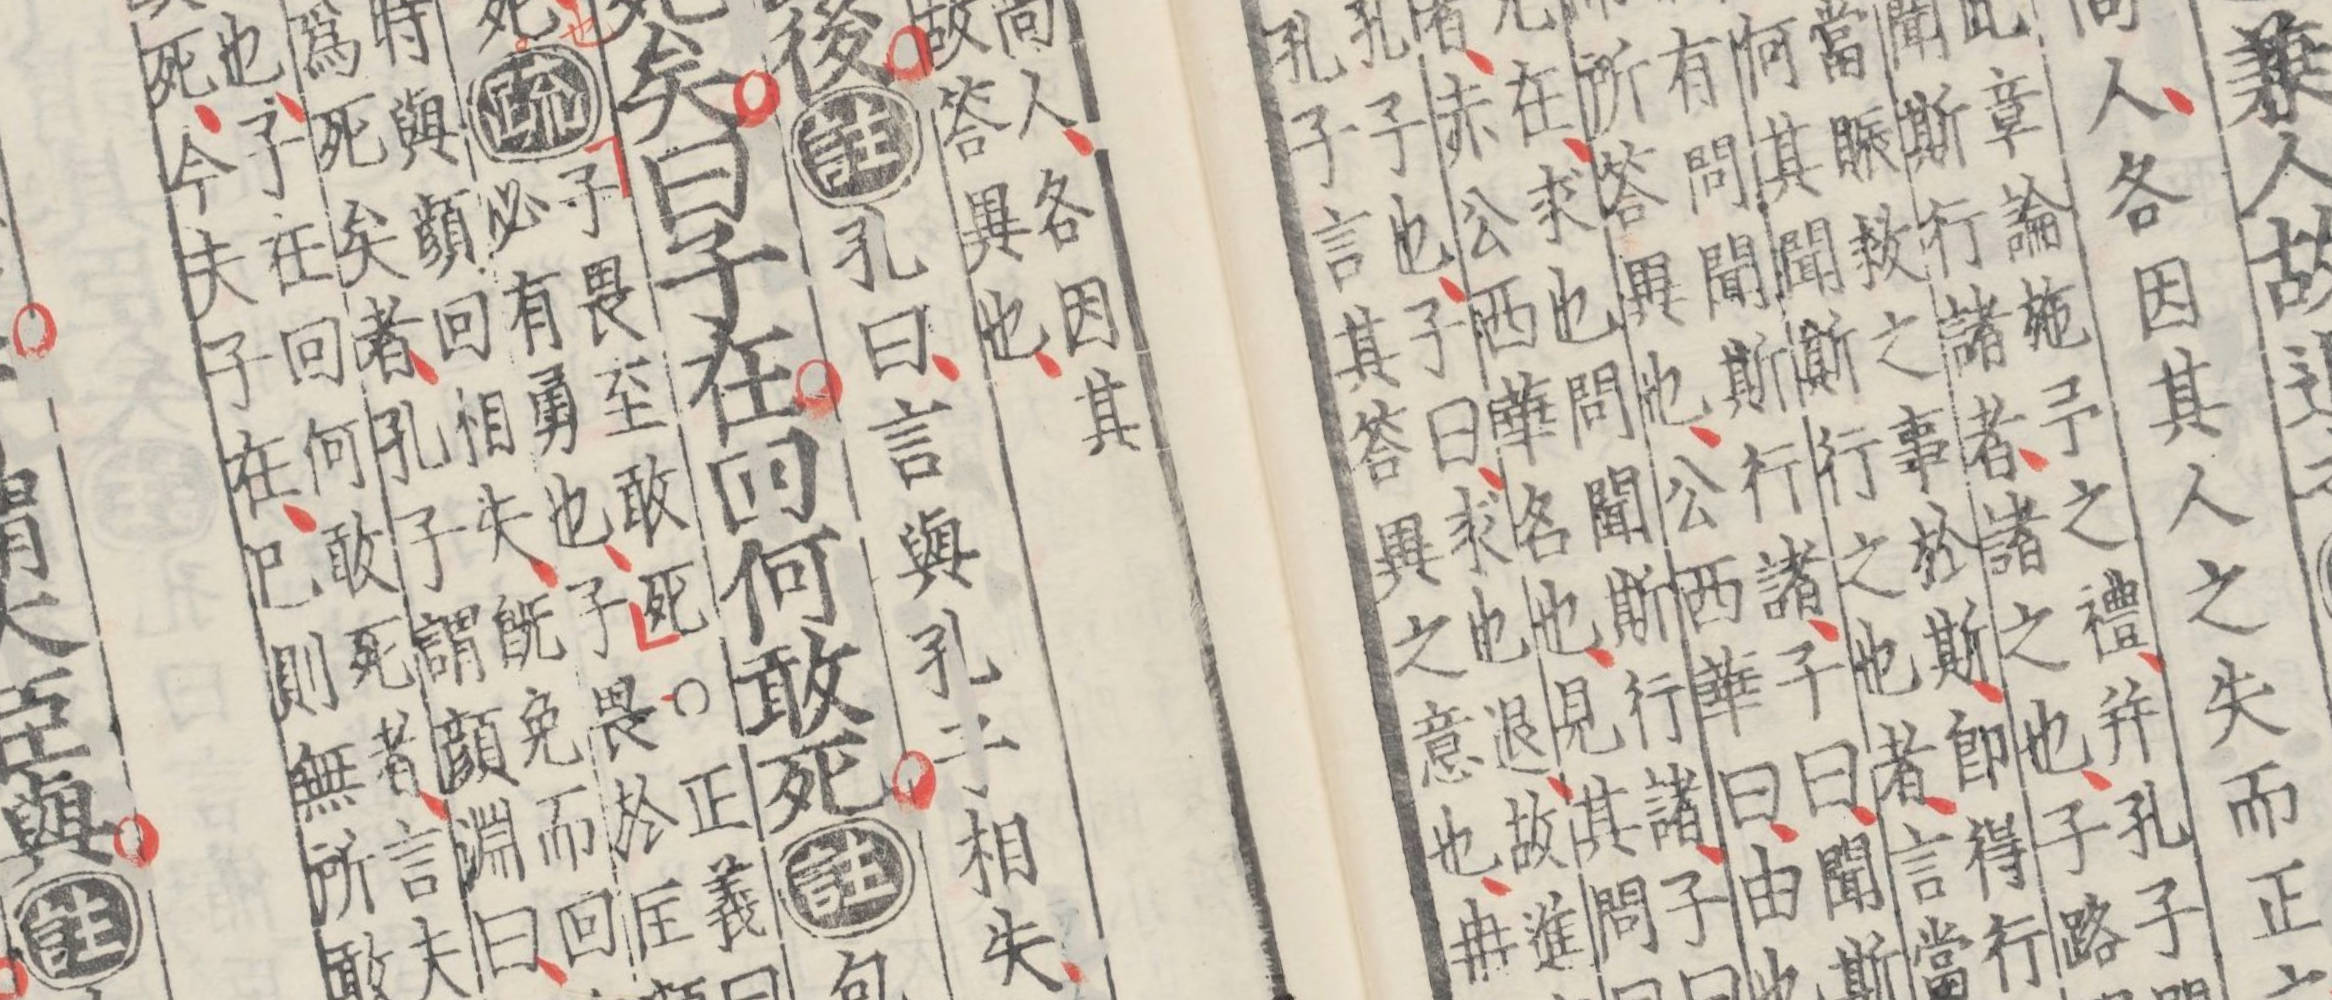 兼人故退
尚人、各因其人之失而正之
此章論施予之禮、并孔子問
聞斯行諸者、諸之也、子路
當賑救之事於斯、即得行
何其聞斯行之也者、言當
有問聞斯行諸、子曰、聞斯
所答異也、公西華曰、由也
兄在、求也問聞斯行諸、子曰
者、赤公西華名也、見其問曰
孔子也、子曰、求也退、故進
孔子言其答異之意也、冉
尚人、各因其
故答異也、
後註孔曰、言與孔子相失、
死矣曰子在回何敢死註包
死也疏子畏至敢死○正義曰
必有勇也、子畏於匡顔
時與顔回相失、既免而回
爲死矣者、孔子謂顔淵曰、
也、子在回何敢死者、言夫
死、今夫子在、己則無所敢
謂大臣與註